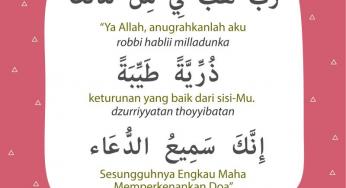 رَبِّ هَبْ لِي مِنْ لَدُنْكَ
“Ya Allah, anugrahkanlah aku
robbi hablii milladunka
ذُرِّيَّةً طَيِّبَةً
keturunan yang baik dari sisi-Mu.
dzurriyyatan thoyyibatan
إِنَّكَ سَمِيعُ الدُّعَاء
Sesungguhnya Engkau Maha
Memperkenankan Doa”